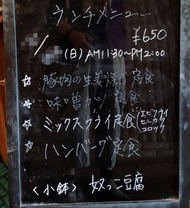 ランチメニュー
¥650
(日)AM11:30~PM2:00
☆ 豚肉の生姜焼き定食
☆ 味噌カツ定食
☆ ミックスフライ定食(エビフライ
ヒレカツ
コロッケ
☆ ハンバーグ定食
<小鉢> 奴っこ豆腐